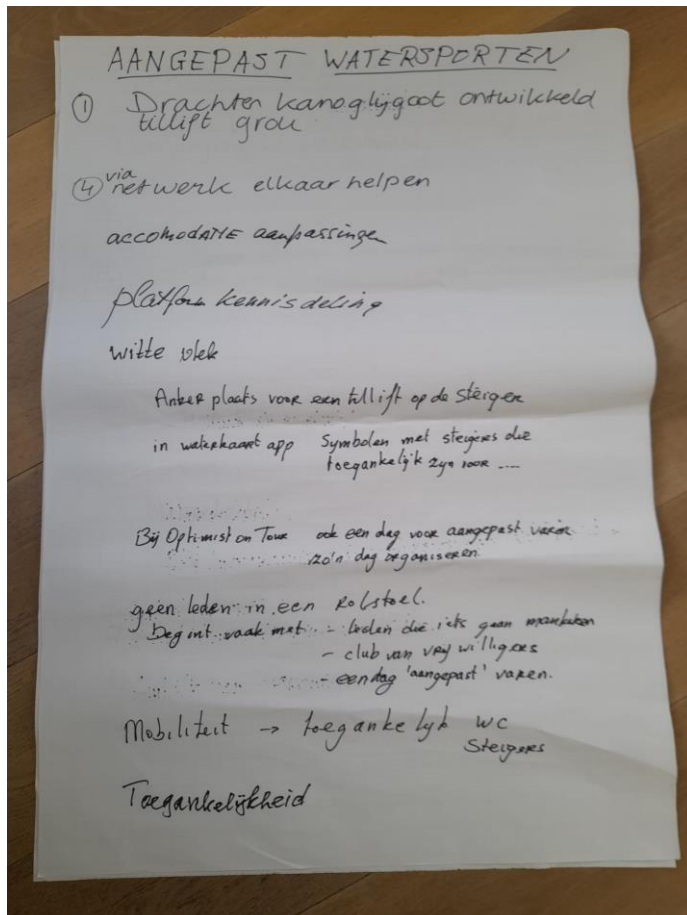 AANGEPAST WATERSPORTEN
① Drachten kanoglijgoot ontwikkeld
tillift grou
④ via netwerk elkaar helpen
ACCOMODATIE aanpassingen
platform kennisdeling
witte vlek
Anker plaats voor een tillift op de steiger
in waterkaart app Symbolen met steigers die
toegankelijk zijn voor ----
Bij Optimist on Tour ook een dag voor aangepast varen
zo'n dag organiseren
geen leden in een Rolstoel.
Begint vaak met - leden die iets gaan mankeren
- club van vrijwilligers
- eendag 'aangepast' varen.
Mobiliteit → toegankelijk WC
Steigers
Toegankelijkheid